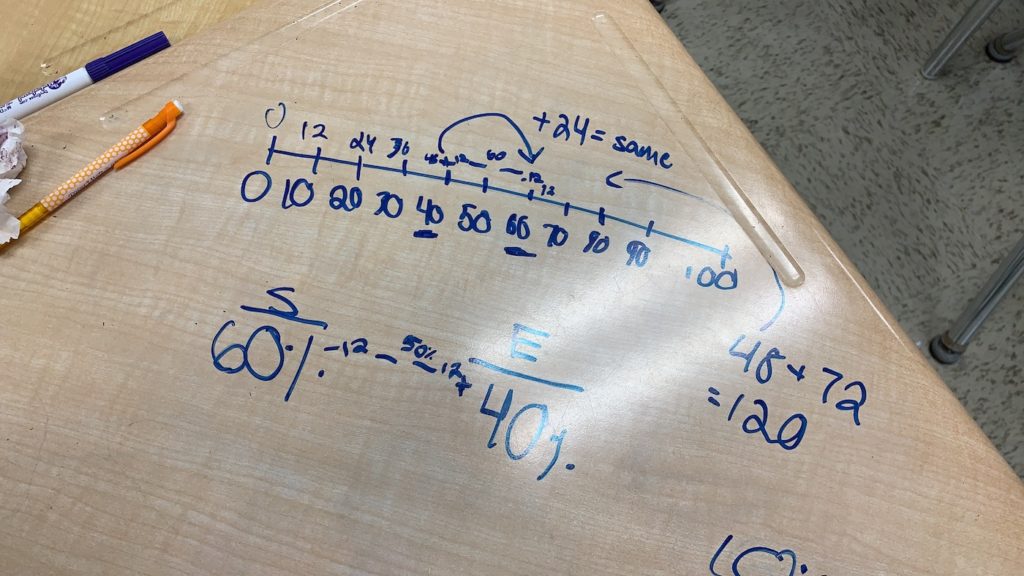 0 12 24 36 48 +12 60 +12 72
+24 = same
0 10 20 30 40 50 60 70 80 90 100
S
60% -12 - 50% - +12
E
40%
48 + 72
= 120